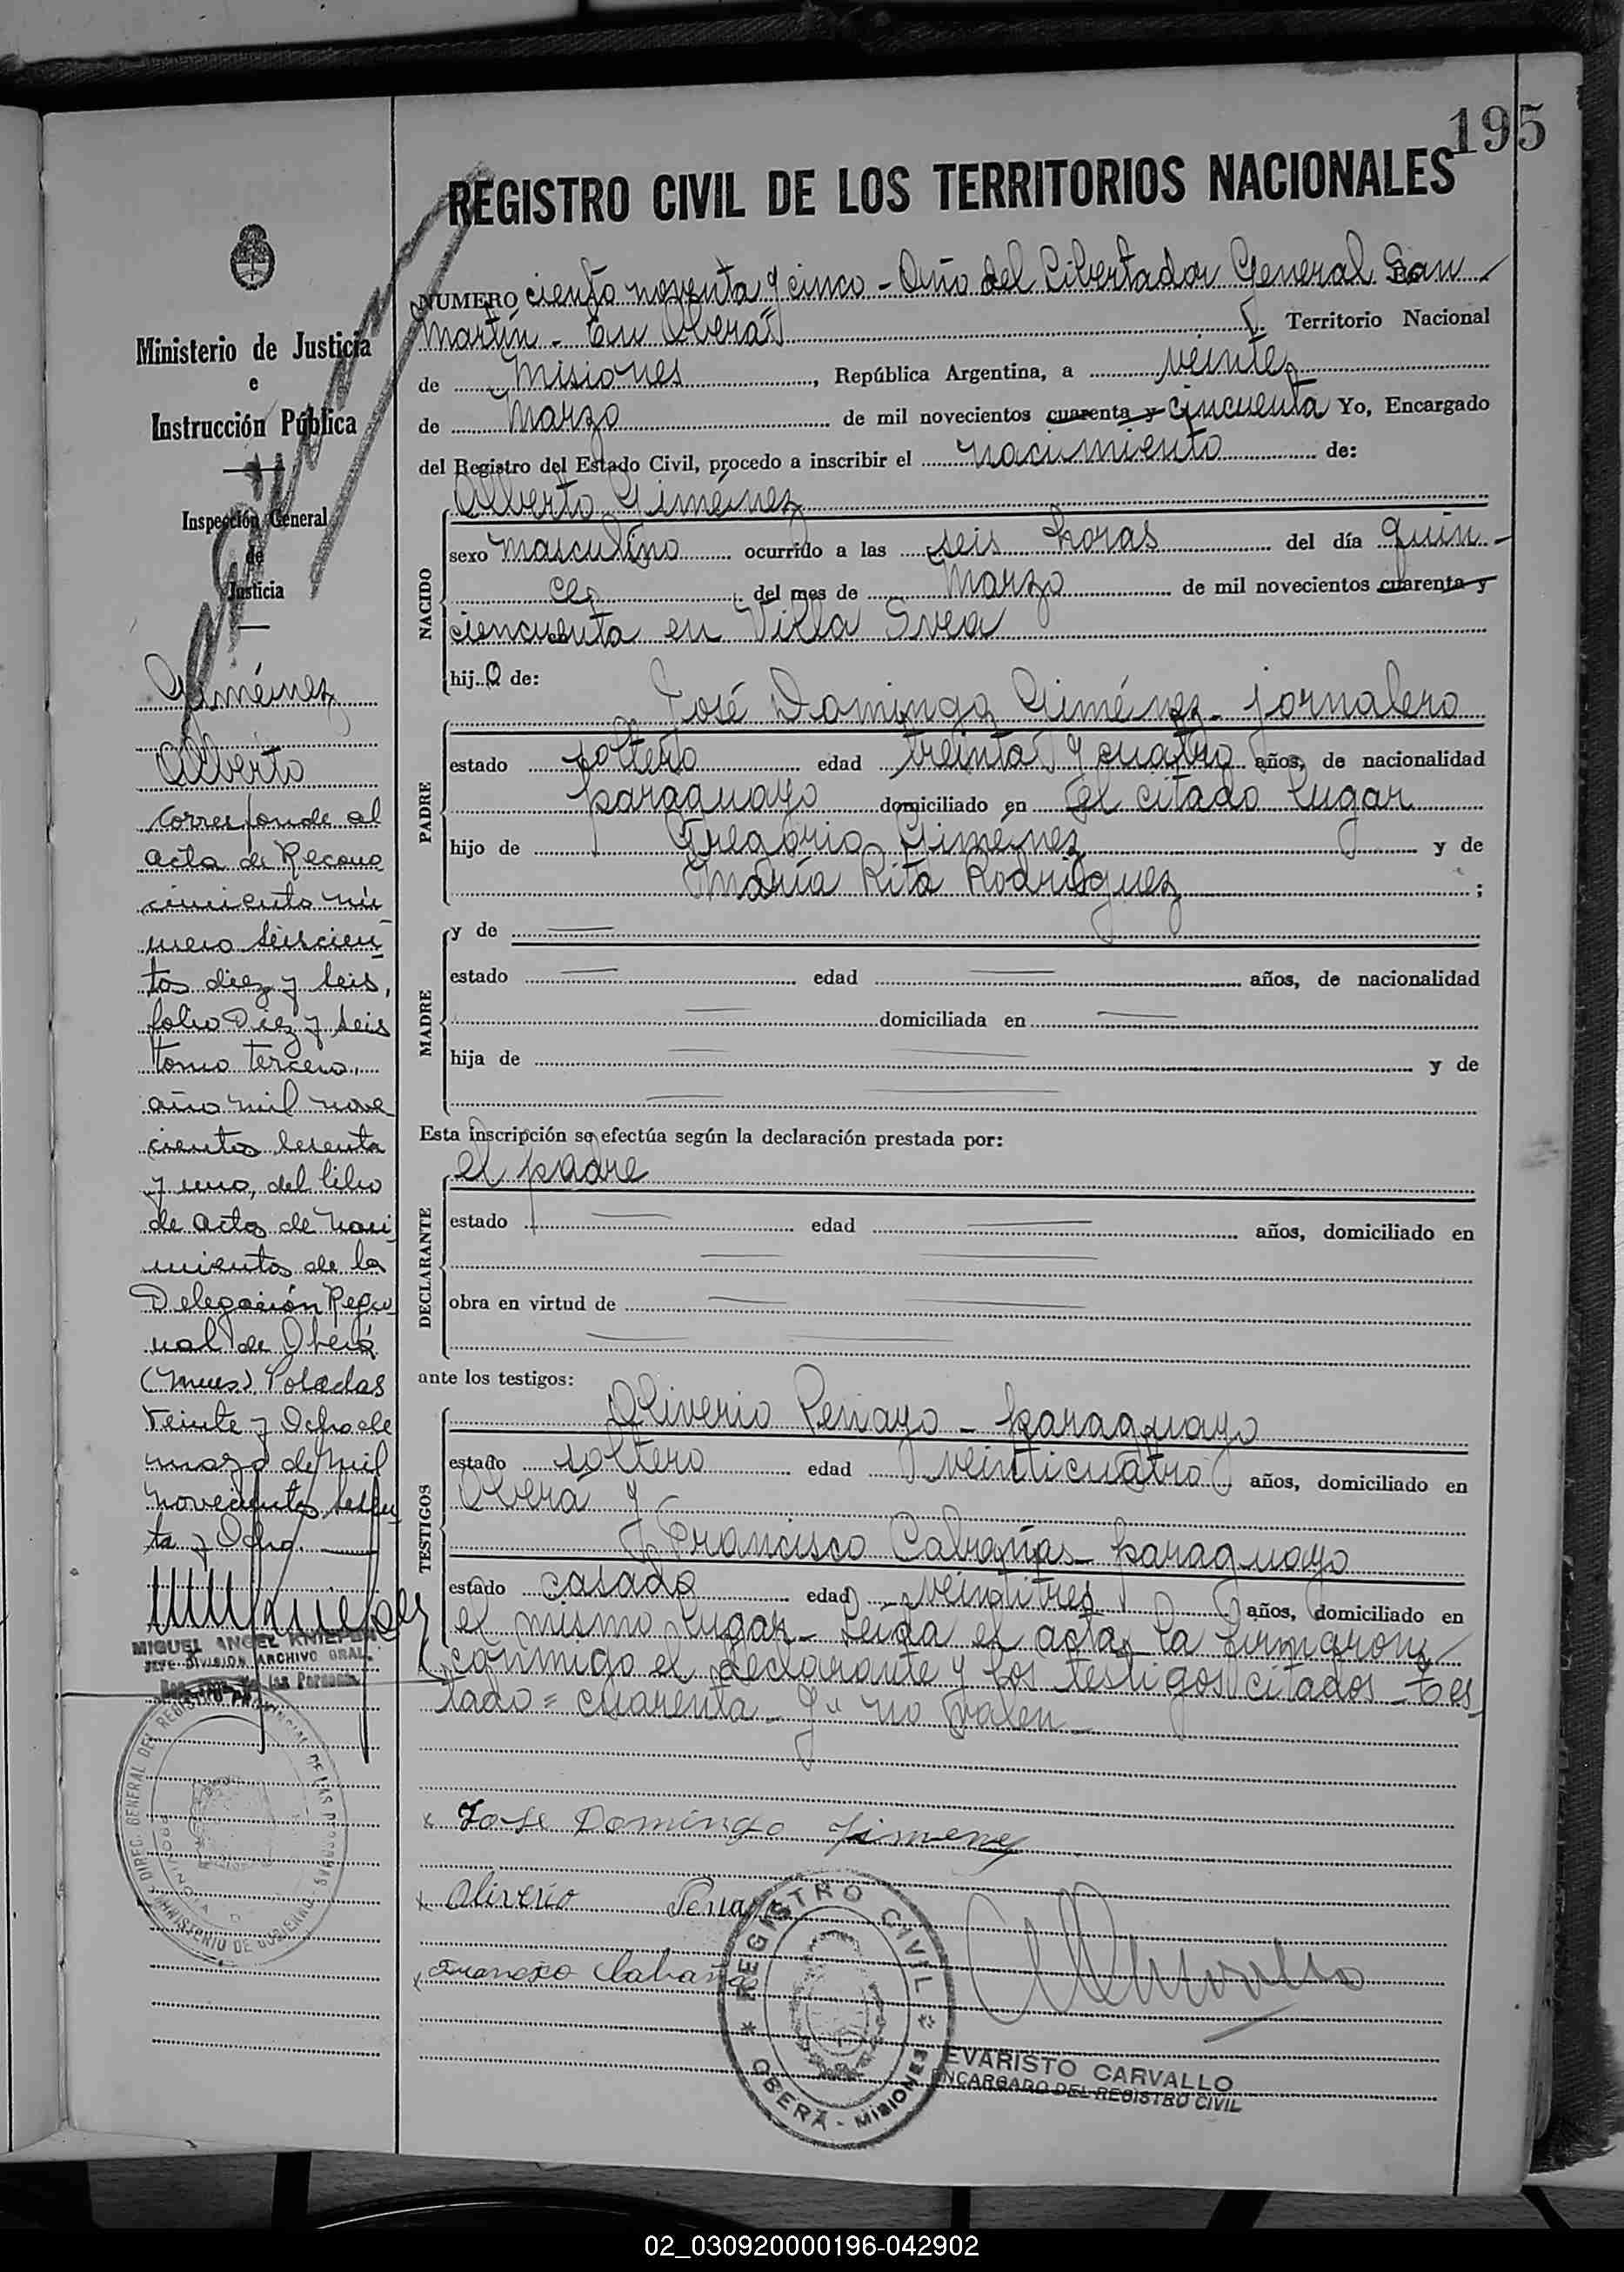 195
REGISTRO CIVIL DE LOS TERRITORIOS NACIONALES
NUMERO ciento noventa y cinco - Año del Libertador General San
Martín - En Oberá Territorio Nacional
de Misiones, República Argentina, a veinte
de Marzo de mil novecientos cuarenta y cincuenta Yo, Encargado
del Registro del Estado Civil, procedo a inscribir el nacimiento de:
Alberto Giménez
NACIDO
sexo masculino ocurrido a las seis horas del día quin-
ce del mes de Marzo de mil novecientos cuarenta y
ciencuenta en Villa Svea
hijo de:
José Domingo Giménez - jornalero
PADRE
estado soltero edad treinta y cuatro años, de nacionalidad
paraguayo domiciliado en el citado lugar
hijo de Gregorio Giménez y de
María Rita Rodríguez ;
MADRE
y de
estado edad años, de nacionalidad
domiciliada en
hija de y de
Esta inscripción se efectúa según la declaración prestada por:
el padre
DECLARANTE
estado edad años, domiciliado en
obra en virtud de
ante los testigos:
Oliverio Penayo - paraguayo
TESTIGOS
estado soltero edad veinticuatro años, domiciliado en
Oberá y
Francisco Cabañas - paraguayo
estado casado edad veintitres años, domiciliado en
el mismo lugar - Leida el acta, la firmaron
conmigo el declarante y los testigos citados - Tes
tado = cuarenta y" no valen -
x Jose Domingo Jimenez
x Oliverio Penayo
x Francisco Cabañas
REGISTRO CIVIL
* OBERÁ - MISIONES *
EVARISTO CARVALLO
ENCARGADO DEL REGISTRO CIVIL
Ministerio de Justicia
e
Instrucción Pública
Inspección General
de
Justicia
Giménez
Alberto
Corresponde al
acta de Recono
cimiento nú
mero seiscien
tos diez y seis,
folio Diez y seis
tomo tercero,
año mil nove
cientos sesenta
y uno, del libro
de actas de naci
mientos de la
Delegación Regio
nal de Oberá
(Mnes) Posadas
Veinte y Ocho de
marzo de mil
novecientos sesen
ta y Ocho.
MIGUEL ANGEL
JEFE DIVISION ARCHIVO GRAL.
de las Personas
DIREC. GENERAL DEL REGISTRO PROVINCIAL DE LAS PERSONAS
MINISTERIO DE GOBIERNO
02_030920000196-042902